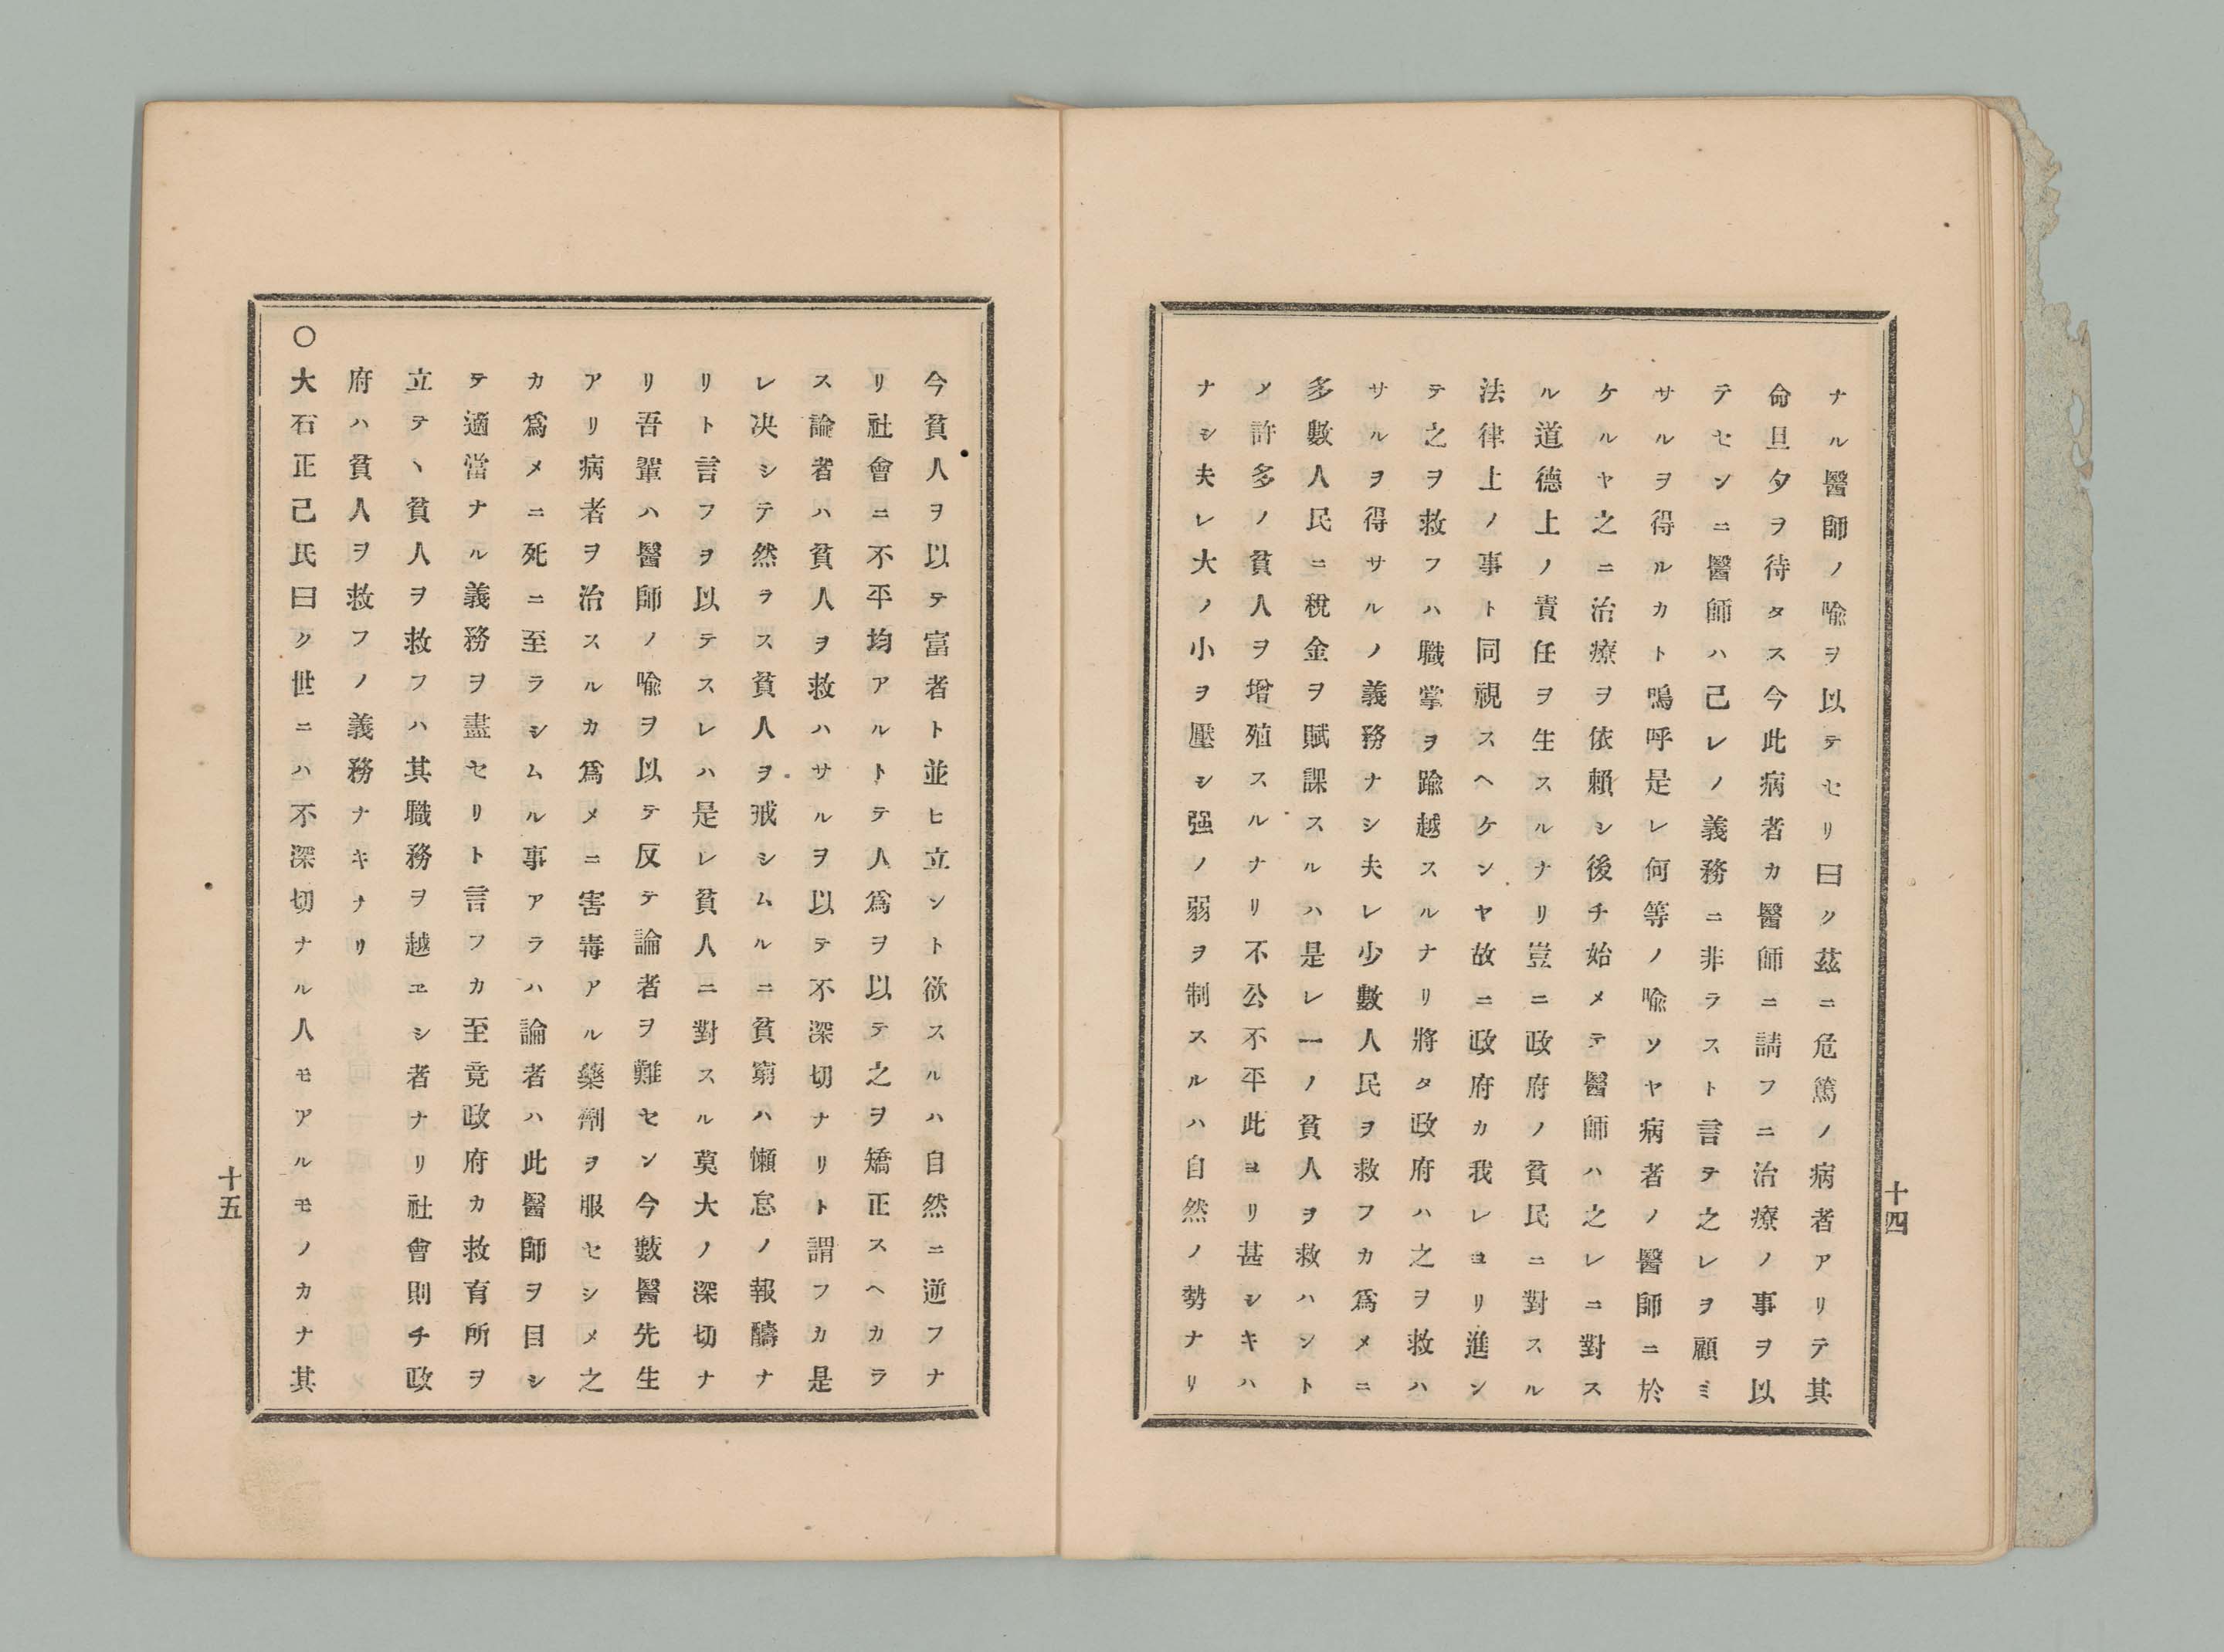 ナル醫師ノ喩ヲ以テセリ曰ク茲ニ危篤ノ病者アリテ其
命旦夕ヲ待タス今此病者カ醫師ニ請フニ治療ノ事ヲ以
テセンニ醫師ハ己レノ義務ニ非ラスト言テ之レヲ顧ミ
サルヲ得ルカト嗚呼是レ何等ノ喩ソヤ病者ノ醫師ニ於
ケルヤ之ニ治療ヲ依賴シ後チ始メテ醫師ハ之レニ對ス
ル道德上ノ責任ヲ生スルナリ豈ニ政府ノ貧民ニ對スル
法律上ノ事ト同視スヘケンヤ故ニ政府カ我レヨリ進ン
テ之ヲ救フハ職掌ヲ踰越スルナリ將タ政府ハ之ヲ救ハ
サルヲ得サルノ義務ナシ夫レ少數人民ヲ救フカ爲メニ
多數人民ニ稅金ヲ賦課スルハ是レ一ノ貧人ヲ救ハント
メ許多ノ貧人ヲ增殖スルナリ不公不平此ヨリ甚シキハ
ナシ夫レ大ノ小ヲ壓シ强ノ弱ヲ制スルハ自然ノ勢ナリ
十四
今貧人ヲ以テ富者ト並ヒ立シト欲スルハ自然ニ逆フナ
リ社會ニ不平均アルトテ人爲ヲ以テ之ヲ矯正スヘカラ
ス論者ハ貧人ヲ救ハサルヲ以テ不深切ナリト謂フカ是
レ决シテ然ラス貧人ヲ戒シムルニ貧窮ハ懶怠ノ報醻ナ
リト言フヲ以テスレハ是レ貧人ニ對スル莫大ノ深切ナ
リ吾輩ハ醫師ノ喩ヲ以テ反テ論者ヲ難セン今藪醫先生
アリ病者ヲ治スルカ爲メニ害毒アル藥劑ヲ服セシメ之
カ爲メニ死ニ至ラシムル事アラハ論者ハ此醫師ヲ目シ
テ適當ナル義務ヲ盡セリト言フカ至竟政府カ救育所ヲ
立テヽ貧人ヲ救フハ其職務ヲ越ヱシ者ナリ社會則チ政
府ハ貧人ヲ救フノ義務ナキナリ
〇大石正己氏曰ク世ニハ不深切ナル人モアルモノカナ其
十五